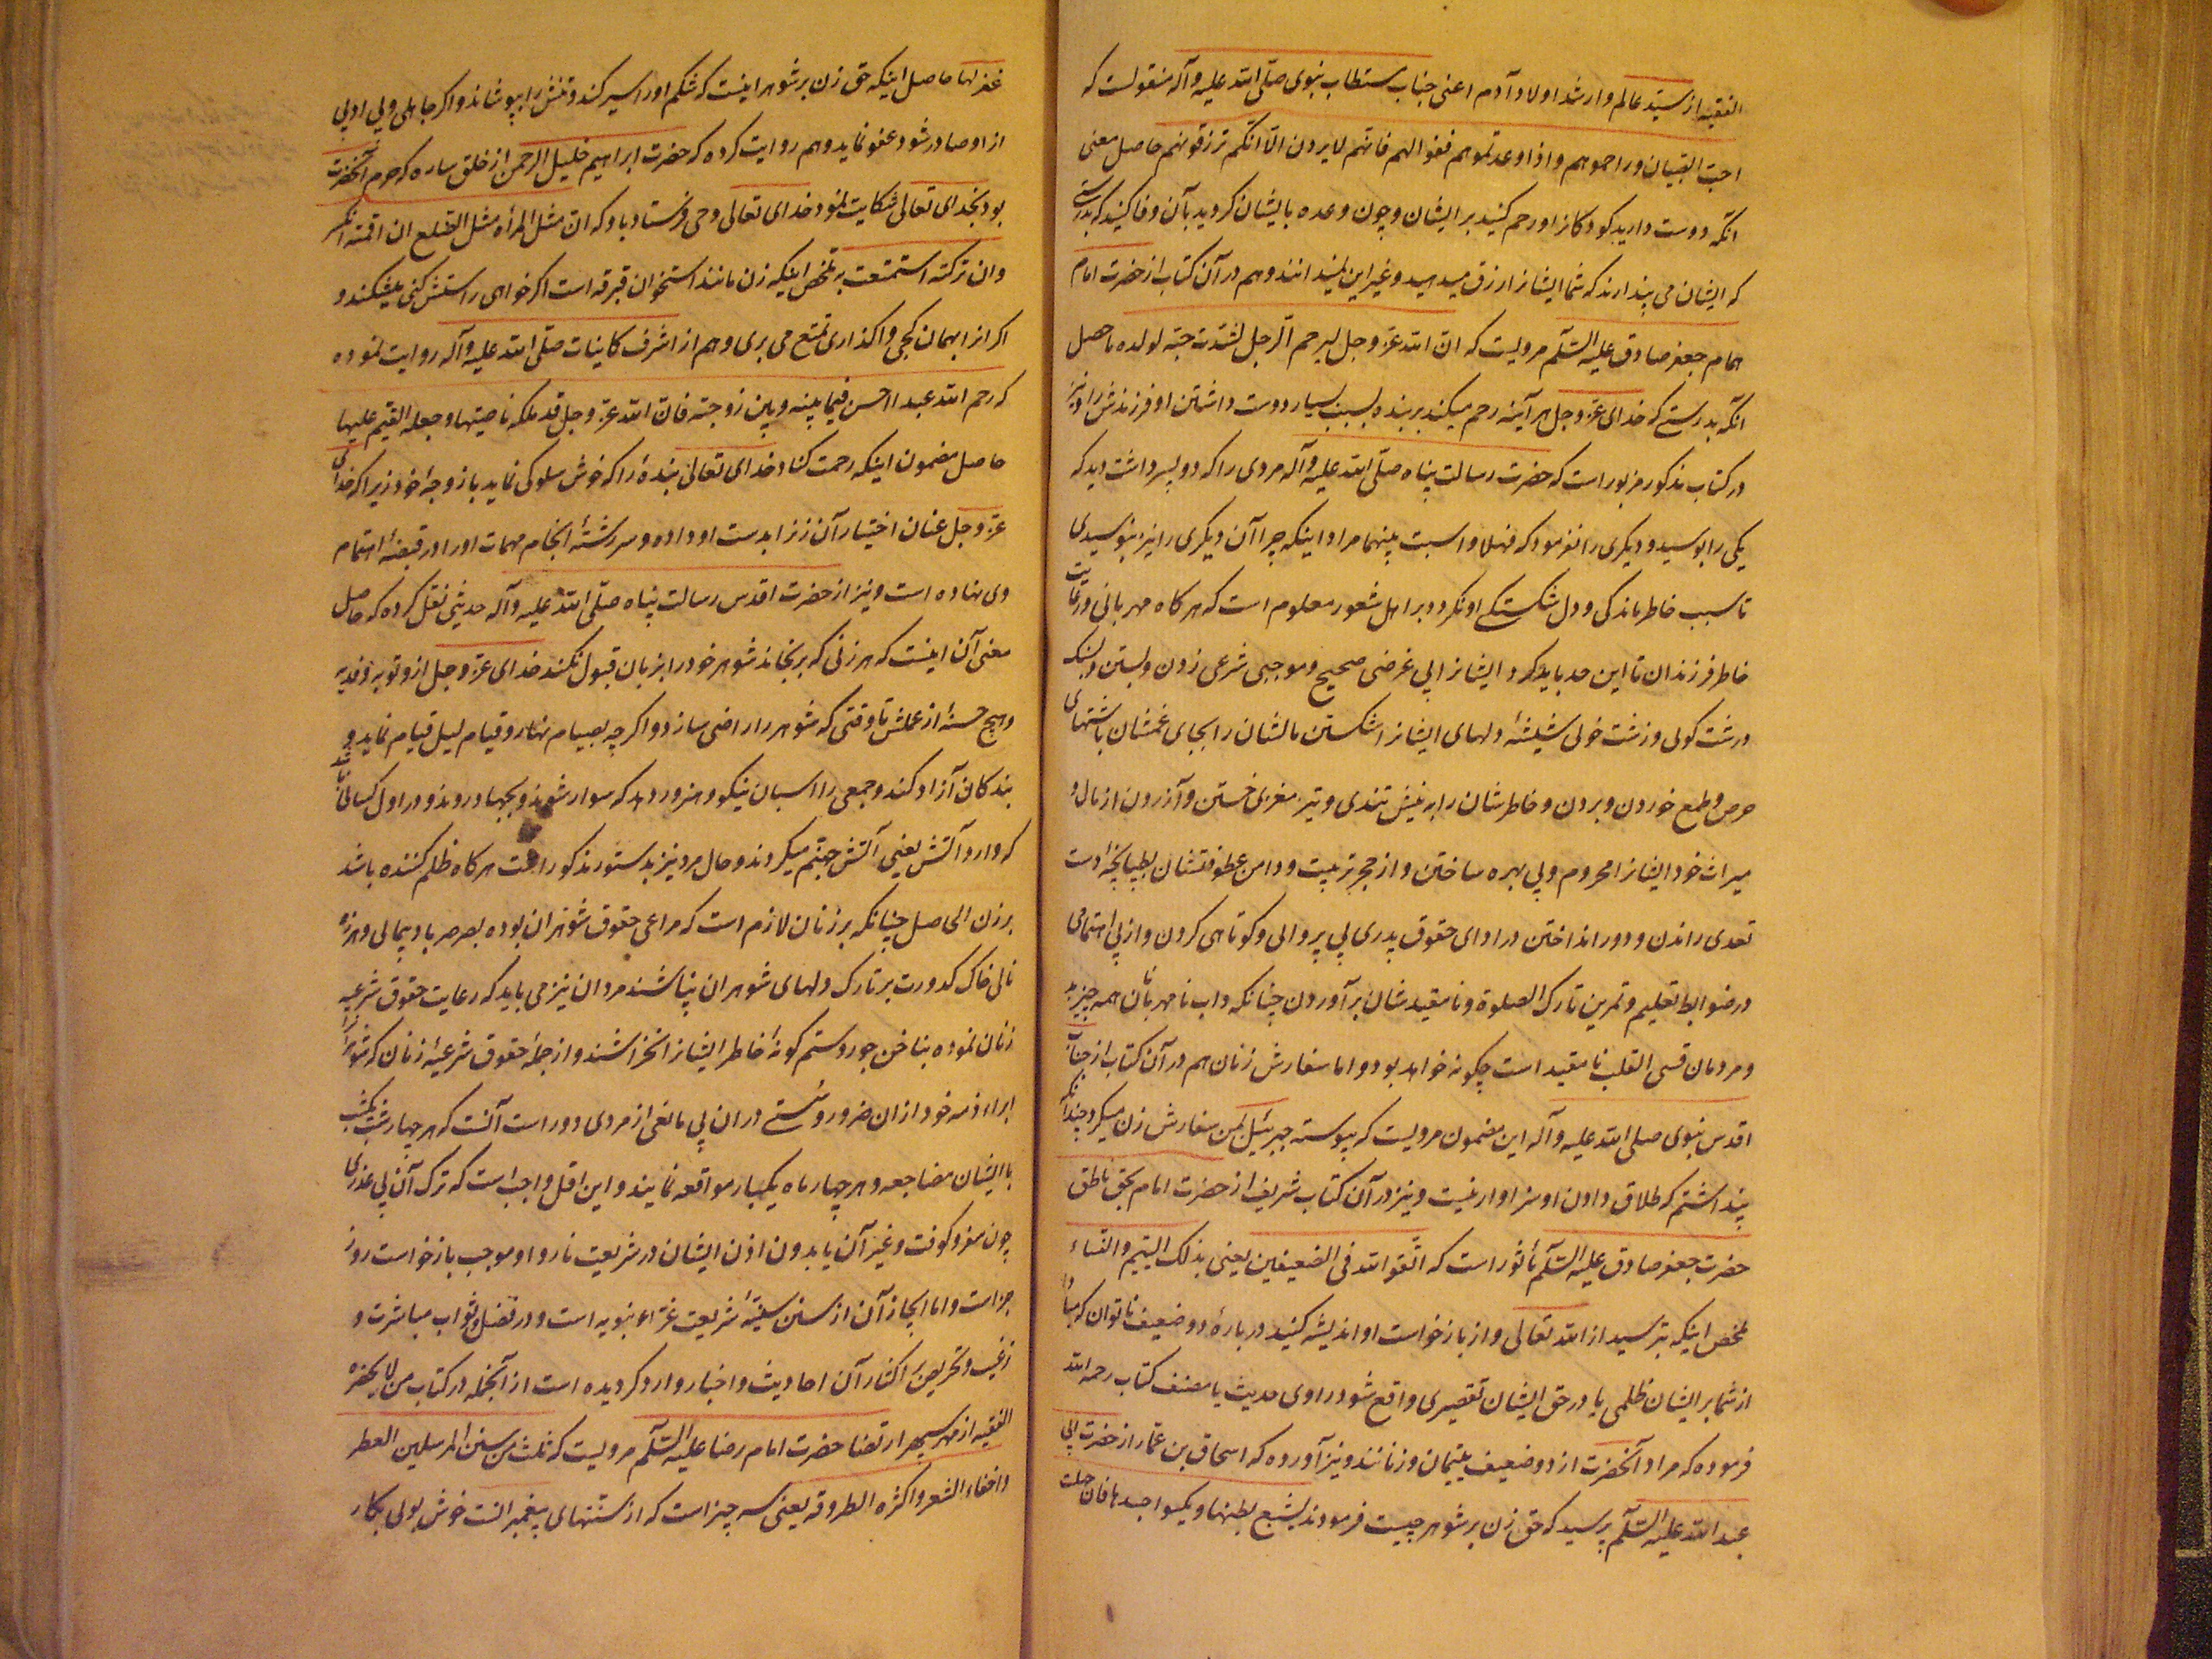 الفقیه از سید عالم و ارشد اولاد آدم اعنی جناب مستطاب نبوی صلّی الله علیه وآله منقولست که
احبّ الصبیان وراحموهم واذا وعدتموهم ففوا لهم فانّهم لا یرون الّا انّکم ترزقونهم حاصل معنی
آنکه دوست دارید کودکانرا و رحم کنید بر ایشان و چون وعده بایشان کردید بآن وفا کنید که بدرستی
که ایشان می پندارند که شما ایشانرا رزق میدهید و غیر این نمیدانند و هم در آن کتاب از حضرت امام
همام جعفر صادق علیه السّلم مرویست که انّ الله عزّ وجل لیرحم الرّجل لشدّت حبّه لولده ماحصل
آنکه بدرستی که خدای عزّ وجل هر آینه رحم میکند بر بنده بسبب بسیار دوست داشتن او فرزندش را و نیز
در کتاب مذکور مزبور است که حضرت رسالت پناه صلّی الله علیه وآله مردی را که دو پسر داشت دید که
یکی را بوسید و دیگری را نه فرمود که فهلا واسیت بینهما مراد اینکه چرا آن دیگری را نیز نبوسیدی
تا سبب خاطر ماندگی و دل شکستگی او نگردد بر اهل شعور معلوم است که هرگاه مهربانی و رعایت
خاطر فرزندان تا این حد باید کرد ایشانرا بی غرضی صحیح و موجبی شرعی زدن و بستن و بسنگ
درشت گوئی و زشت خوئی شیشۀ دلهای ایشانرا شکستن مالشان را بجای غمشان باشتهای
حرص و طمع خوردن و بردن و خاطرشان را به نیش تندی و تیز مغزی خستن و آزردن از مال و
میراث خود ایشانرا محروم و بی بهره ساختن و از حجر تربیت و دامن عطوفتشان بطپانچۀ دست
تعدی راندن و دور انداختن در ادای حقوق پدری بی پروائی و کوتاهی کردن و از بی اهتمامی
در ضوابط تعلیم و تمرین تارک الصلوة و نامقیدشان برآوردن چنانکه داب نامهربانان همه چیز بد
و مردمان قسی القلب نامقید است چگونه خواهد بود و اما سفارش زنان هم در آن کتاب از جناب
اقدس نبوی صلی الله علیه وآله این مضمون مرویست که پیوسته جبرئیل بمن سفارش زن میکرد چندانکه
پنداشتم که طلاق دادن او سزاوار نیست و نیز در آن کتاب شریف از حضرت امام بحق ناطق
حضرت جعفر صادق علیه السّلم مأثور است که اتّقوا الله فی الضعیفین یعنی بذلک الیتیم والنساء
ملخص اینکه بترسید از الله تعالی و از بازخواست او اندیشه کنید در بارۀ دو ضعیف ناتوان که مبادا
از شما بر ایشان ظلمی یا در حق ایشان تقصیری واقع شود راوی حدیث یا مصنف کتاب رحمه الله
فرموده که مراد آنحضرت از دو ضعیف یتیمان و زنانند و نیز آورده که اسحاق بن عمّار از حضرت ابی
عبدالله علیه السّلم پرسید که حق زن بر شوهر چیست فرمودند یشبع بطنها ویکسوا جسدها فان جهلت
غفر لها حاصل اینکه حق زن بر شوهر اینست که شکم او را سیر کند و تنش را بپوشاند و اگر جاهلی و بی ادبی
از او صادر شود عفو نماید و هم روایت کرده که حضرت ابراهیم خلیل الرحمن از خلق ساره که حرم آنحضرت
بود بخدای تعالی شکایت نمود خدای تعالی وحی فرستاد باو که انّ مثل المرأه مثل الضلع ان اقمته انکسر
وان ترکته استمتعت به ملخص اینکه زن مانند استخوان قبرقه است اگر خواهی راستش کنی میشکند و
اگر از ابهمان کجی واگذاری تمتع می بری و هم از اشرف کاینات صلّی الله علیه وآله روایت نموده
که رحم الله عبدا احسن فیما بینه وبین زوجته فانّ الله عزّ وجل قد ملکه ناصیتها وجعله القیّم علیها
حاصل مضمون اینکه رحمت کناد خدای تعالی بندۀ را که خوش سلوکی نماید با زوجۀ خود زیرا که خدای
عزّ وجل عنان اختیار آن زنرا بدست او داده و سررشتۀ انجام مهمات او را در قبضۀ اهتمام
وی نهاده است و نیز از حضرت اقدس رسالت پناه صلّی الله علیه وآله حدیثی نقل کرده که حاصل
معنی آن اینست که هر زنی که برنجاند شوهر خود را بزبان قبول نکند خدای عزّ وجل از و توبه و فدیه
و هیچ حسنۀ از عملش تا وقتی که شوهر را راضی سازد و اگر چه بصیام نهار و قیام لیل قیام نماید و
بندگان آزاد کند و جمعی را اسبان نیکو و هنرور دهد که سوار شوند و بجهاد روند و در اول کسانی باشد
که وارد آتش یعنی آتش جهنّم میگردند و حال مرد نیز بدستور مذکور است هرگاه ظلم کننده باشد
بر زن الحاصل چنانکه بر زنان لازم است که مراعی حقوق شوهران بوده بصرصر بادپیمائی و هرزه
نالی خاک کدورت بر تارک دلهای شوهران نپاشند مردان نیز می باید که رعایت حقوق شرعیه
زنان نموده بناخن جور و ستم گونۀ خاطر ایشانرا نخراشند و از جملۀ حقوق شرعیۀ زنان که شوهرانرا
ابراء ذمه خود از ان ضرور و سستی دران بی مانعی از مردی دور است آنست که هر چهار شب یکشب
با ایشان مضاجعه و هر چهار ماه یکبار مواقعه نمایند و این اقل واجب است که ترک آن بی عذری
چون سفر و کوفت و غیر آن یا بدون اذن ایشان در شریعت ناروا و موجب بازخواست روز
جزاست و اما ایجاز آن از سنن سنیّۀ شریعت غرّاء نبویه است و در فضل و ثواب مباشرت و
ترغیب و تحریص اکثار آن احادیث و اخبار وارد گردیده است از آنجمله در کتاب من لا یحضره
الفقیه از مهر سپهر ارتضا حضرت امام رضا علیه السّلم مرویست که ثلث من سنن المرسلین العطر
واخفاء الشعر واکثره الطروقه یعنی سه چیز است که از سنّتهای پیغمبرانست خوش بوئی بکار